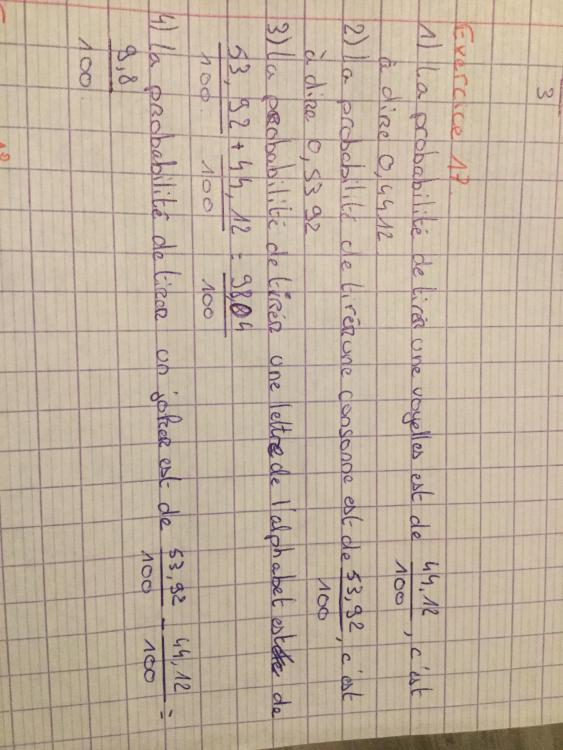 3
Exercice 17
1) La probabilité de tirér une voyelles est de 44,12/100, c'est
à dire 0,4412
2) La probabilité de tirér une consonne est de 53,92/100, c'est
à dire 0,5392
3) La probabilité de tirér une lettre de l'alphabet est de
53,92/100 + 44,12/100 = 98,04/100
4) La probabilité de tirer un joker est de 53,92/100 - 44,12/100 =
9,8/100